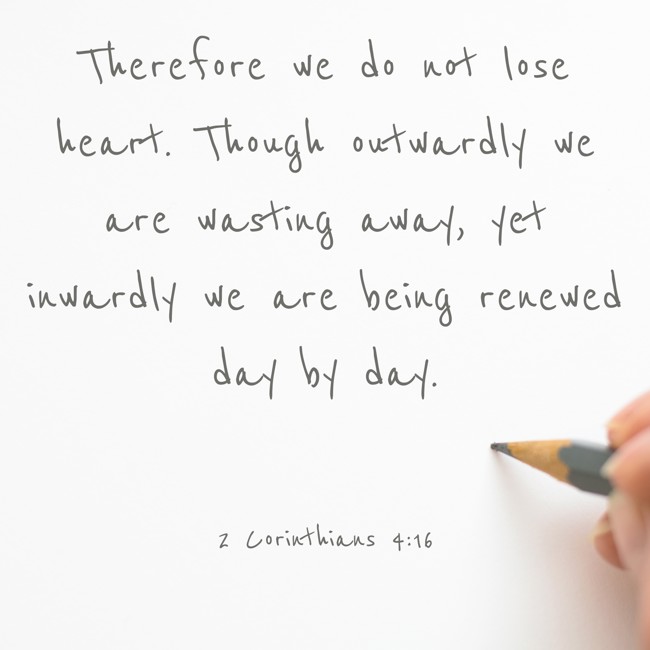 Therefore we do not lose
heart. Though outwardly we
are wasting away, yet
inwardly we are being renewed
day by day.
2 Corinthians 4:16